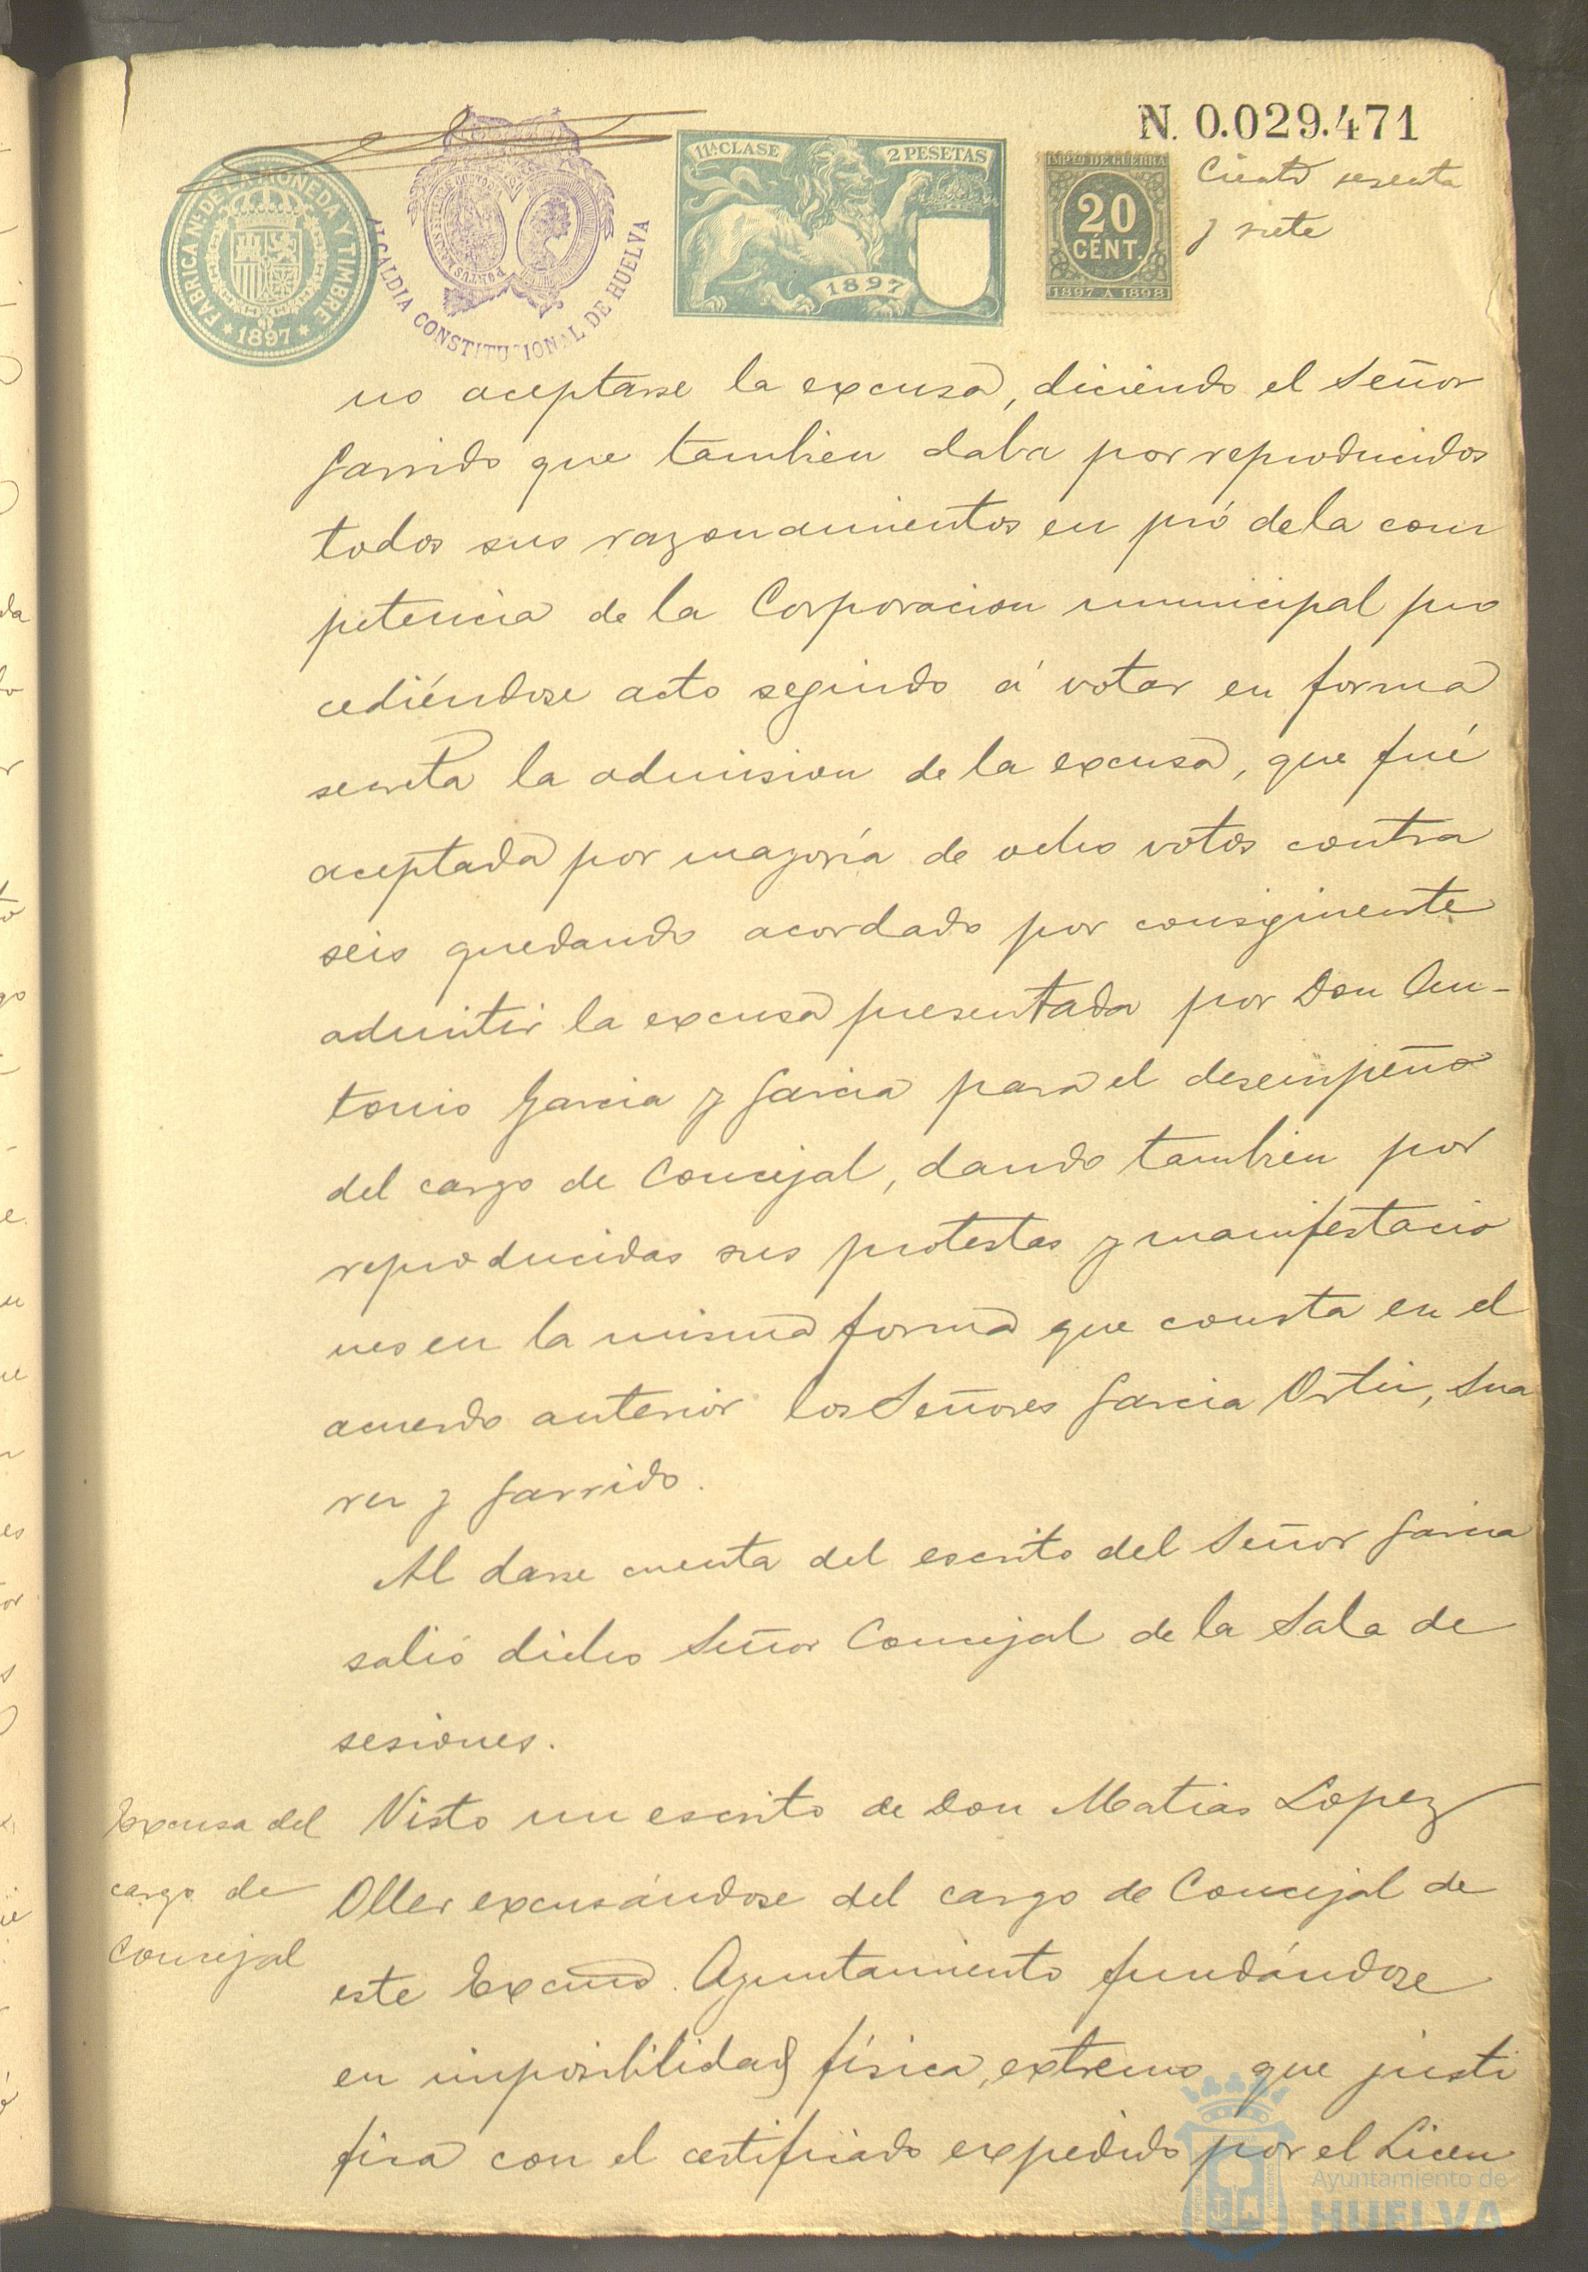 N. 0.029.471
Ciento sesenta
y siete
FABRICA Nal DE LA MONEDA Y TIMBRE
* 1897 *
ALCALDIA CONSTITUCIONAL DE HUELVA
11ª CLASE
2 PESETAS
1897
IMPTO DE GUERRA
20
CÉNT.
1897 A 1898
no aceptarse la excusa, diciendo el Señor
Garrido que tambien daba por reproducidos
todos sus razonamientos en pró de la com
petencia de la Corporacion municipal pro
cediéndose acto seguido á votar en forma
secreta la admision de la excusa, que fué
aceptada por mayoría de ocho votos contra
seis quedando acordado por consiguiente
admitir la excusa presentada por Don An-
tonio Garcia y Garcia para el desempeño
del cargo de Concejal, dando tambien por
reproducidas sus protestas y manifestacio
nes en la misma forma que consta en el
acuerdo anterior los Señores Garcia Ortiz, Sua
rez y Garrido.
Al darse cuenta del escrito del Señor Garcia
salió dicho Señor Concejal de la Sala de
sesiones.
Excusa del
cargo de
Concejal
Visto un escrito de Don Matias Lopez
Oller excusándose del cargo de Concejal de
este Excmo. Ayuntamiento fundándose
en imposibilidad física, extremo que justi
fica con el certificado expedido por el Licen
Ayuntamiento de
HUELVA